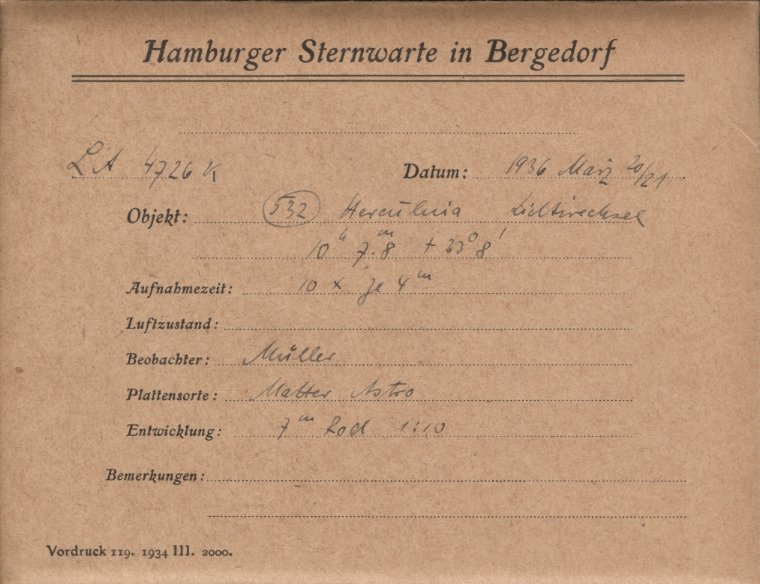 Hamburger Sternwarte in Bergedorf
LA 4726 K Datum: 1936 März 20/21
Objekt: 532 Herculina Lichtwechsel
10ʰ 7.ᵐ8 + 33° 8'
Aufnahmezeit: 10 × je 4ᵐ
Luftzustand:
Beobachter: Müller
Plattensorte: Matter Astro
Entwicklung: 7ᵐ Rod 1:10
Bemerkungen:
Vordruck 119. 1934 III. 2000.